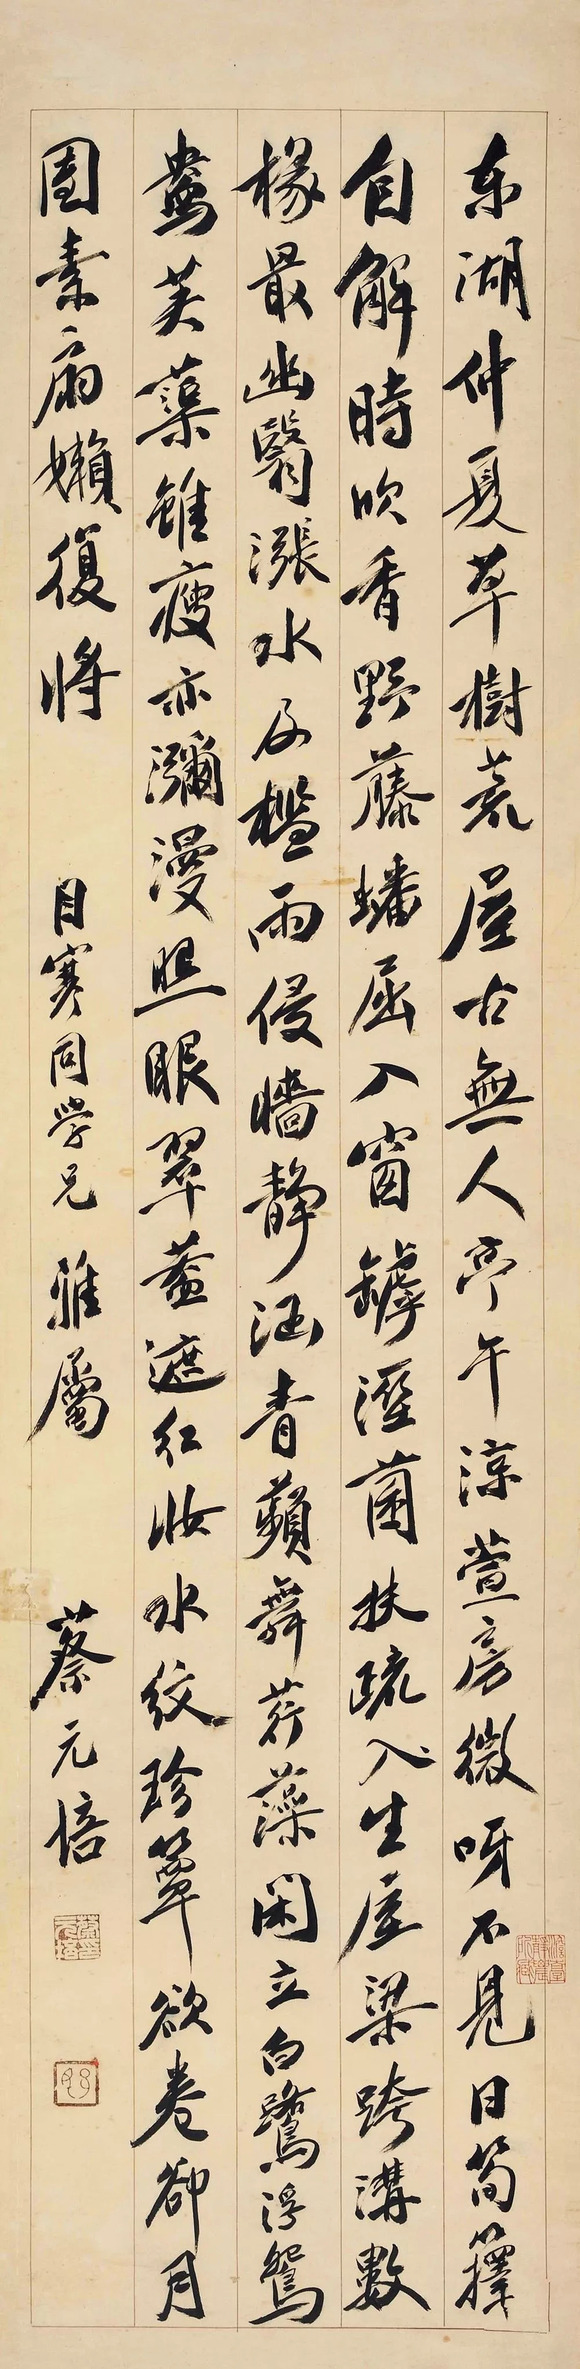 东湖仲夏草樹荒屋古無人亭午涼萱房微呀不見日筍籜
自解時吹香野藤蟠屈入窗罅溼菌扶疏入生屋梁跨溝數
椽最幽翳漲水及檻雨侵牆靜涵青蘋舞荇藻閑立白鷺浮鴛
鴦芙蕖雖瘦亦瀰漫照眼翠蓋遮紅妝水紋珍簟欲卷卻月
團素扇懶復將
目寒同學兄 雅屬
蔡元培